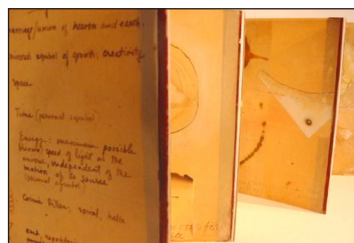 marriage/union of heaven and earth.
universal symbol of growth, creativity
space
Time (personal symbol)
Energy: maximum possible
(known) speed of light in the
universe, independent of the
motion of its source
(personal symbol)
Cosmic Pillar, spiral, helix
and